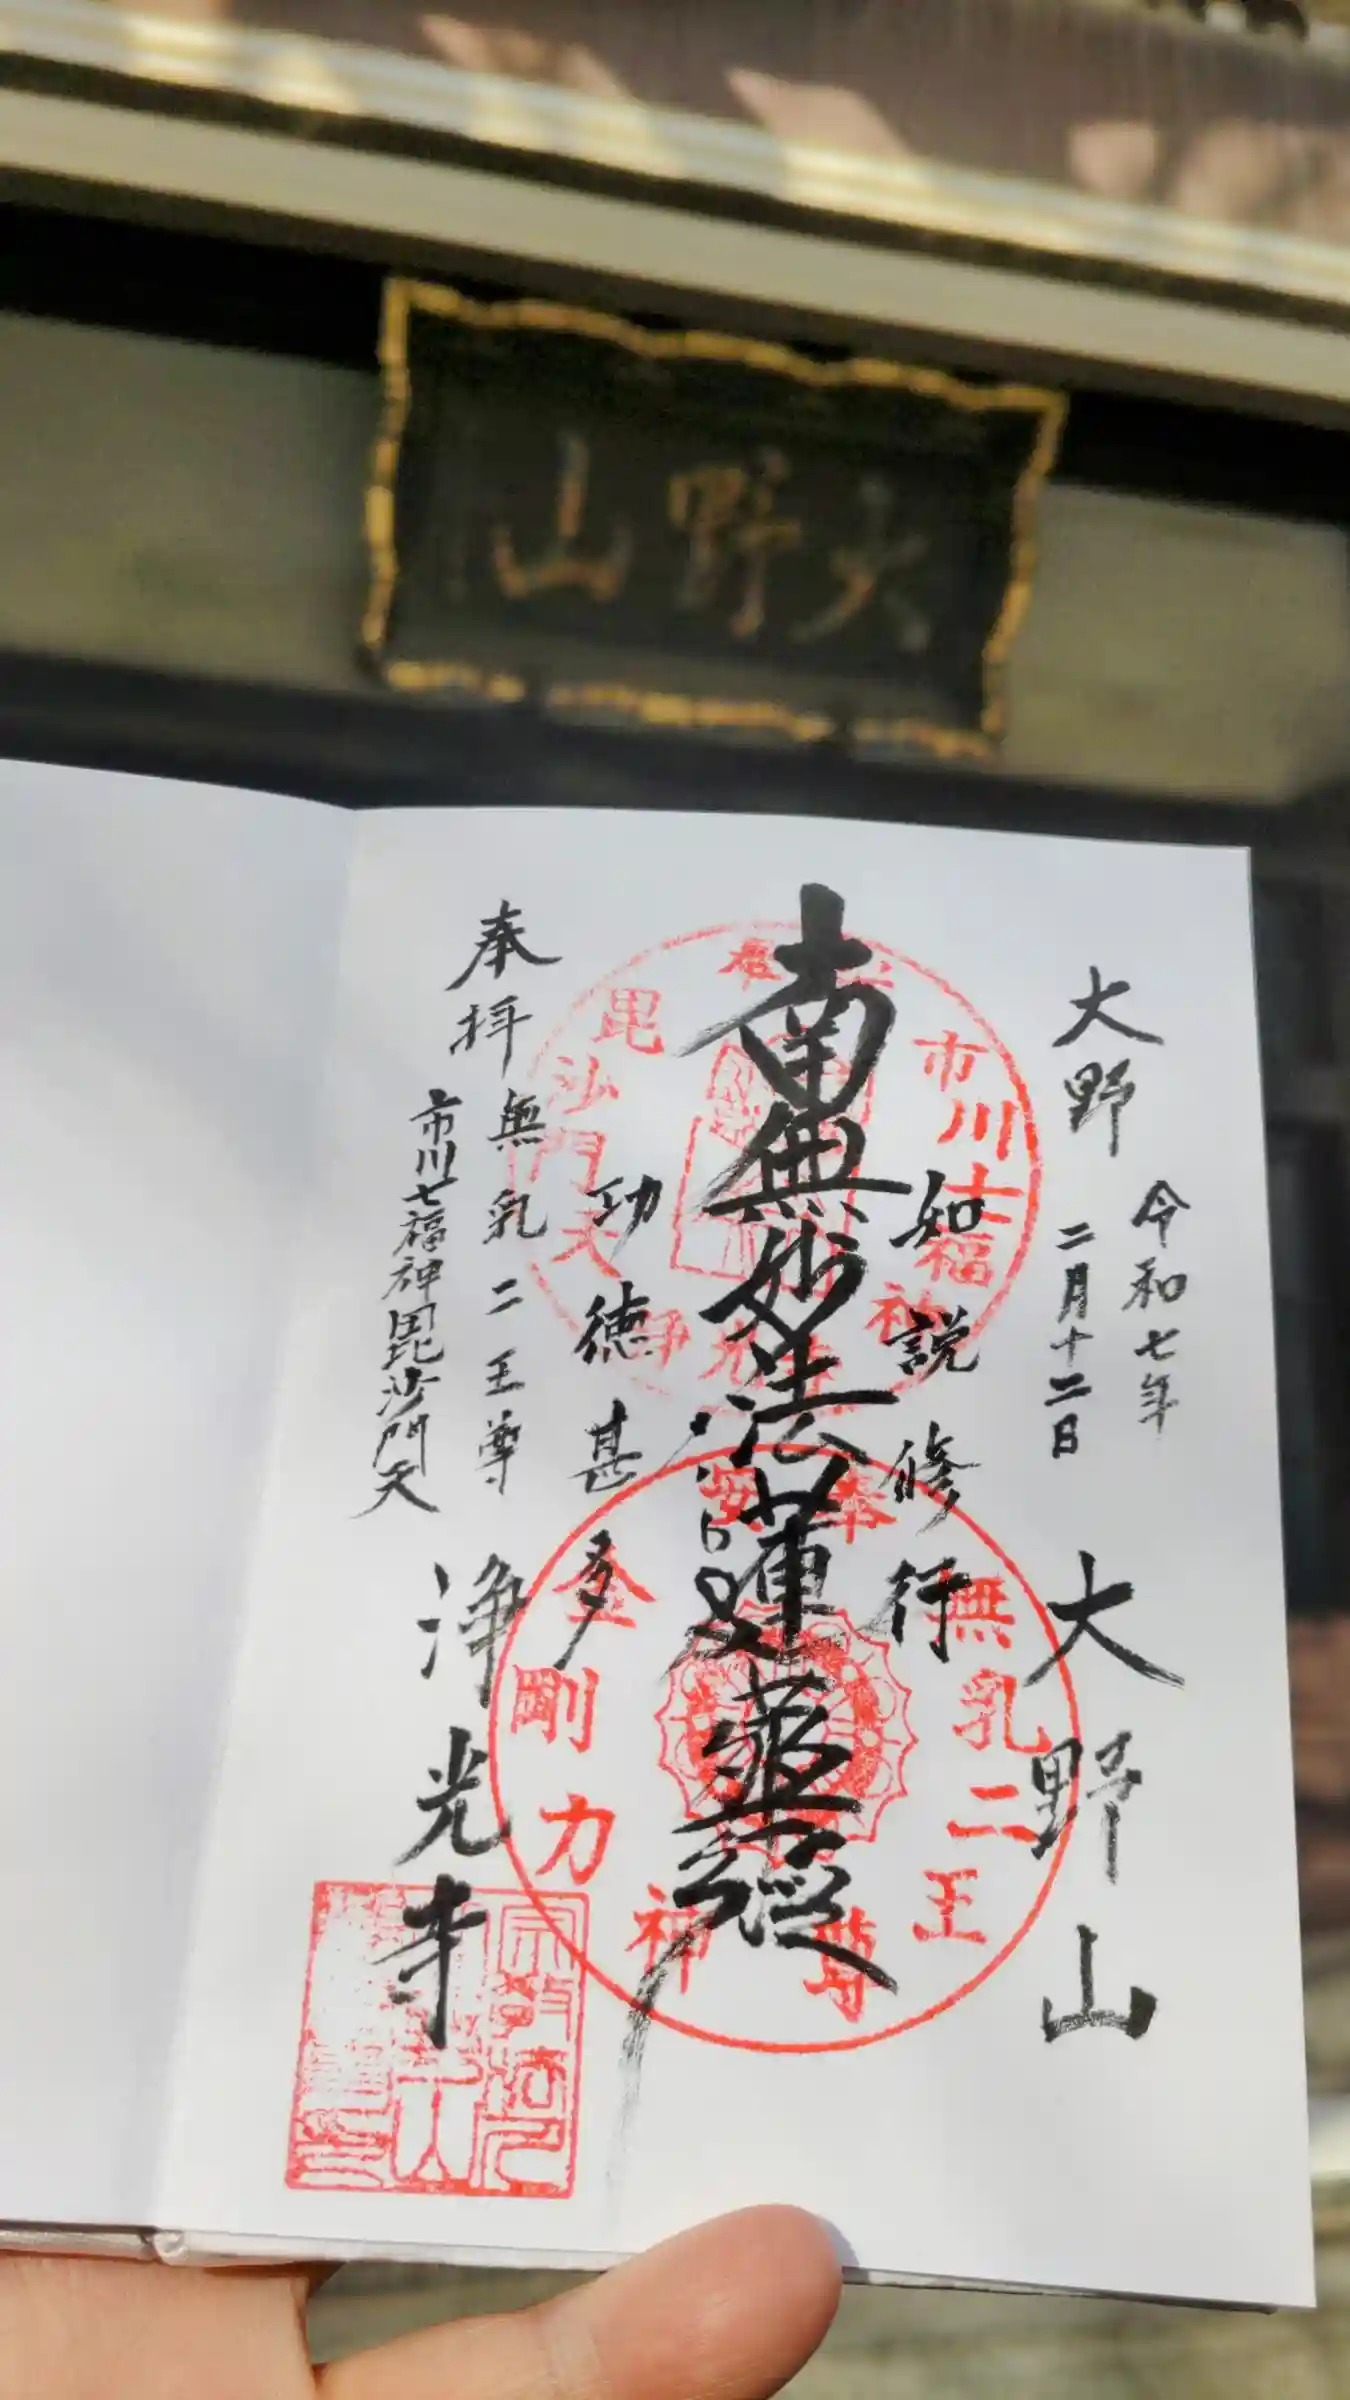 大野山
大野
令和七年
二月十二日
大野山
知説修行
南無妙法蓮華経
功徳甚多
奉拝
無乳二王尊
市川七福神毘沙門天
浄光寺
市川七福神
毘沙門天
奉安
無乳二王尊
金剛力神